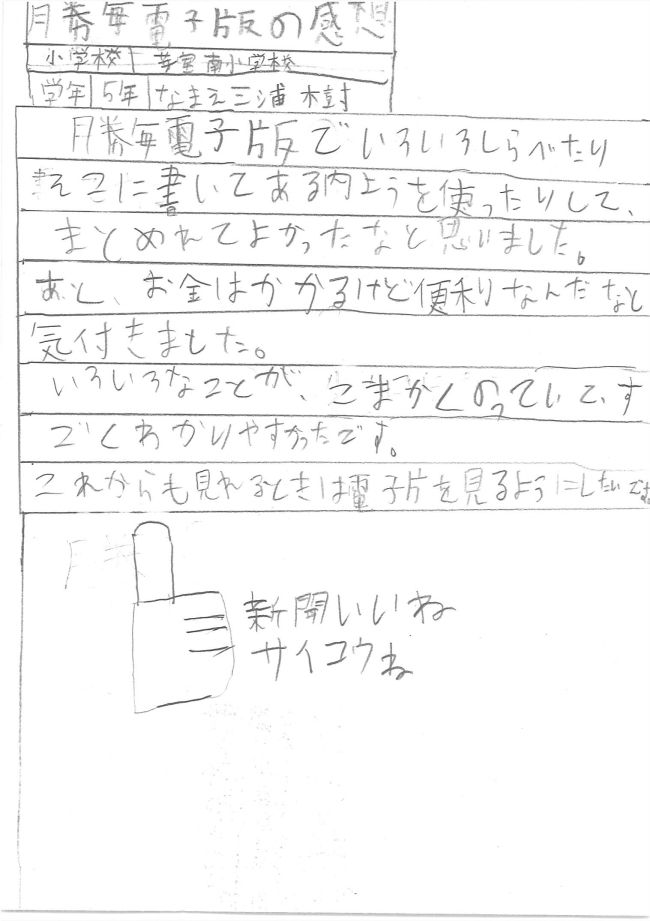 月勝毎電子版の感想
小学校 芽室南小学校
学年 5年 なまえ 三浦 樹
月勝毎電子版でいろいろしらべたり
そこに書いてある内ようを使ったりして、
まとめれてよかったなと思いました。
あと、お金はかかるけど便利なんだなと
気付きました。
いろいろなことが、こまかくのっていてす
ごくわかりやすかったです。
これからも見れるときは電子片を見るようにしたいです。
新聞いいね
サイコウね